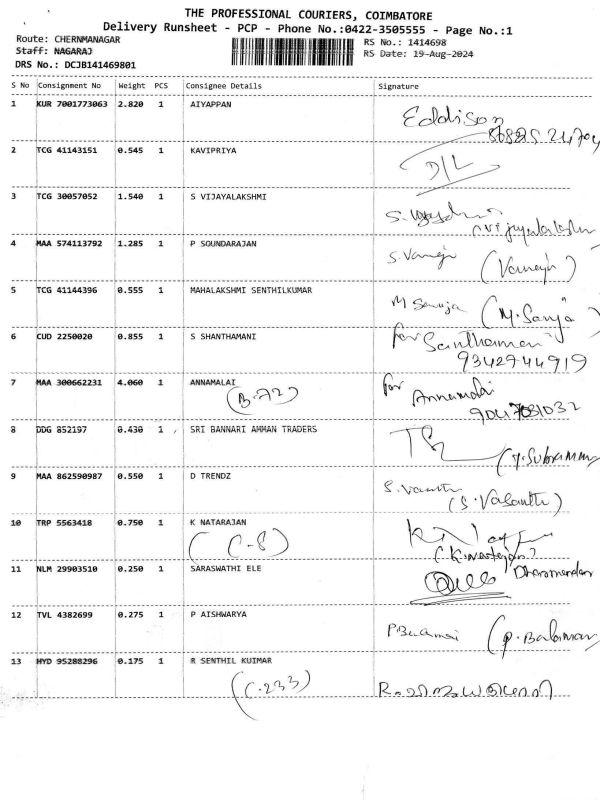 THE PROFESSIONAL COURIERS, COIMBATORE
Delivery Runsheet - PCP - Phone No.:0422-3505555 - Page No.:1
Route: CHERNMANAGAR RS No.: 1414698
Staff: NAGARAJ RS Date: 19-Aug-2024
DRS No.: DCJB141469801
S No Consignment No Weight PCS Consignee Details Signature
1 KUR 7001773063 2.820 1 AIYAPPAN Eddison
2 TCG 41143151 0.545 1 KAVIPRIYA D/L
3 TCG 30057052 1.540 1 S VIJAYALAKSHMI
4 MAA 574113792 1.285 1 P SOUNDARAJAN
5 TCG 41144396 0.555 1 MAHALAKSHMI SENTHILKUMAR (M.Sanja)
6 CUD 2250020 0.855 1 S SHANTHAMANI for Santhamani
9342744919
7 MAA 300662231 4.060 1 ANNAMALAI for Annamalai
(B-72) 9047031032
8 DDG 852197 0.430 1 SRI BANNARI AMMAN TRADERS
9 MAA 862590987 0.550 1 D TRENDZ (S.Vasanth)
10 TRP 5563418 0.750 1 K NATARAJAN
(C-8)
11 NLM 29903510 0.250 1 SARASWATHI ELE
12 TVL 4382699 0.275 1 P AISHWARYA
13 HYD 95288296 0.175 1 R SENTHIL KUIMAR
(C.233)